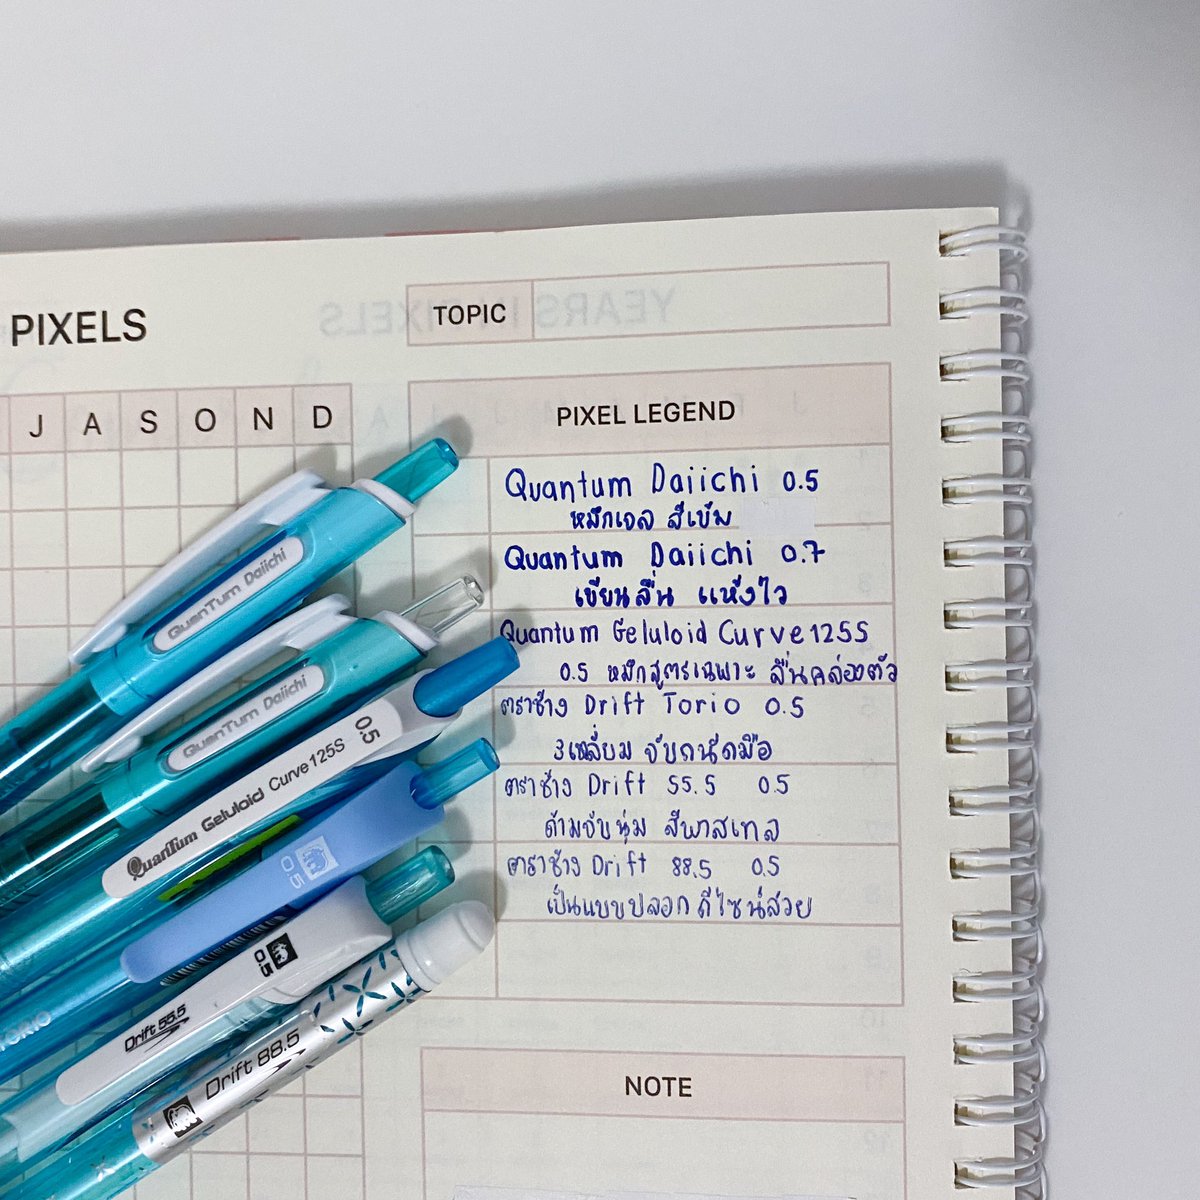 PIXELS
TOPIC
J A S O N D
PIXEL LEGEND
Quantum Daiichi 0.5
หมึกเจล สีเข้ม
Quantum Daiichi 0.7
เขียนลื่น แห้งไว
Quantum Geluloid Curve125S
0.5 หมึกสูตรเฉพาะ ลื่นคล่องตัว
ตราช้าง Drift Torio 0.5
3เหลี่ยม จับถนัดมือ
ตราช้าง Drift 55.5 0.5
ด้ามจับนุ่ม สีพาสเทล
ตราช้าง Drift 88.5 0.5
เป็นแบบปลอก ดีไซน์สวย
NOTE
QuanTum Daiichi
QuanTum Daiichi
QuanTum Geluloid Curve125S 0.5
0.5
TORIO
Drift 55.5 0.5
Drift 88.5